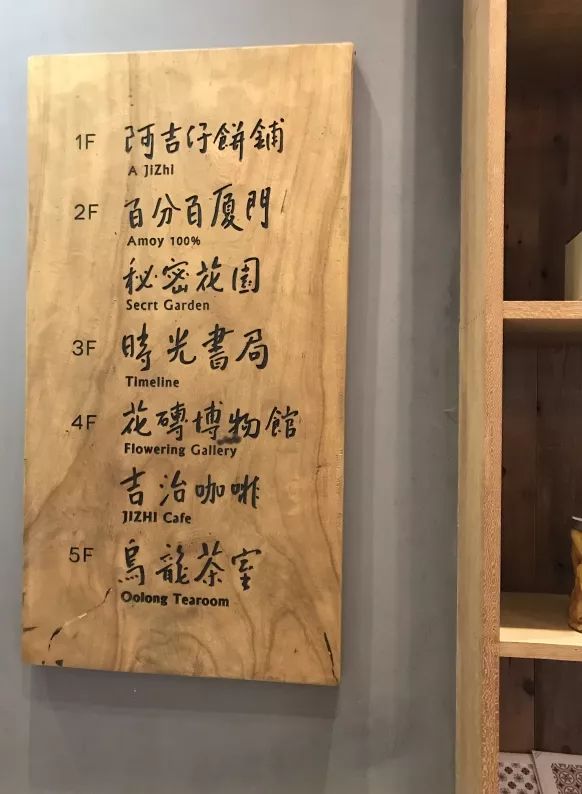 1F 阿吉仔餅鋪
A JiZhi
2F 百分百廈門
Amoy 100%
秘密花園
Secrt Garden
3F 時光書局
Timeline
4F 花磚博物館
Flowering Gallery
吉治咖啡
JIZHI Cafe
5F 烏龍茶室
Oolong Tearoom